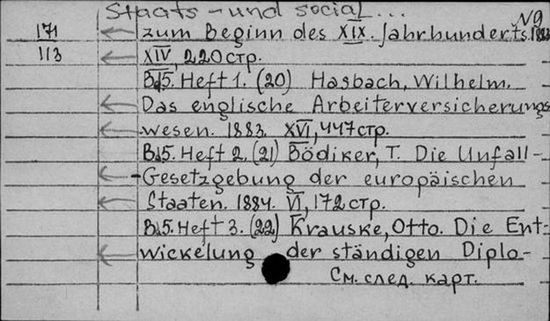 Staats - und social... N9
171 zum Beginn des XIX. Jahrhunderts. 1883
113 XIV, 220 стр.
Bd5. Heft 1. (20) Hasbach, Wilhelm.
Das englische Arbeiterversicherungs
wesen. 1883. XVI, 447 стр.
Bd5. Heft 2. (21) Bödiker, T. Die Unfall-
-Gesetzgebung der europäischen
Staaten. 1884. VI, 172 стр.
Bd5. Heft 3. (22) Krauske, Otto. Die Ent-
wickelung der ständigen Diplo-
См. след. карт.